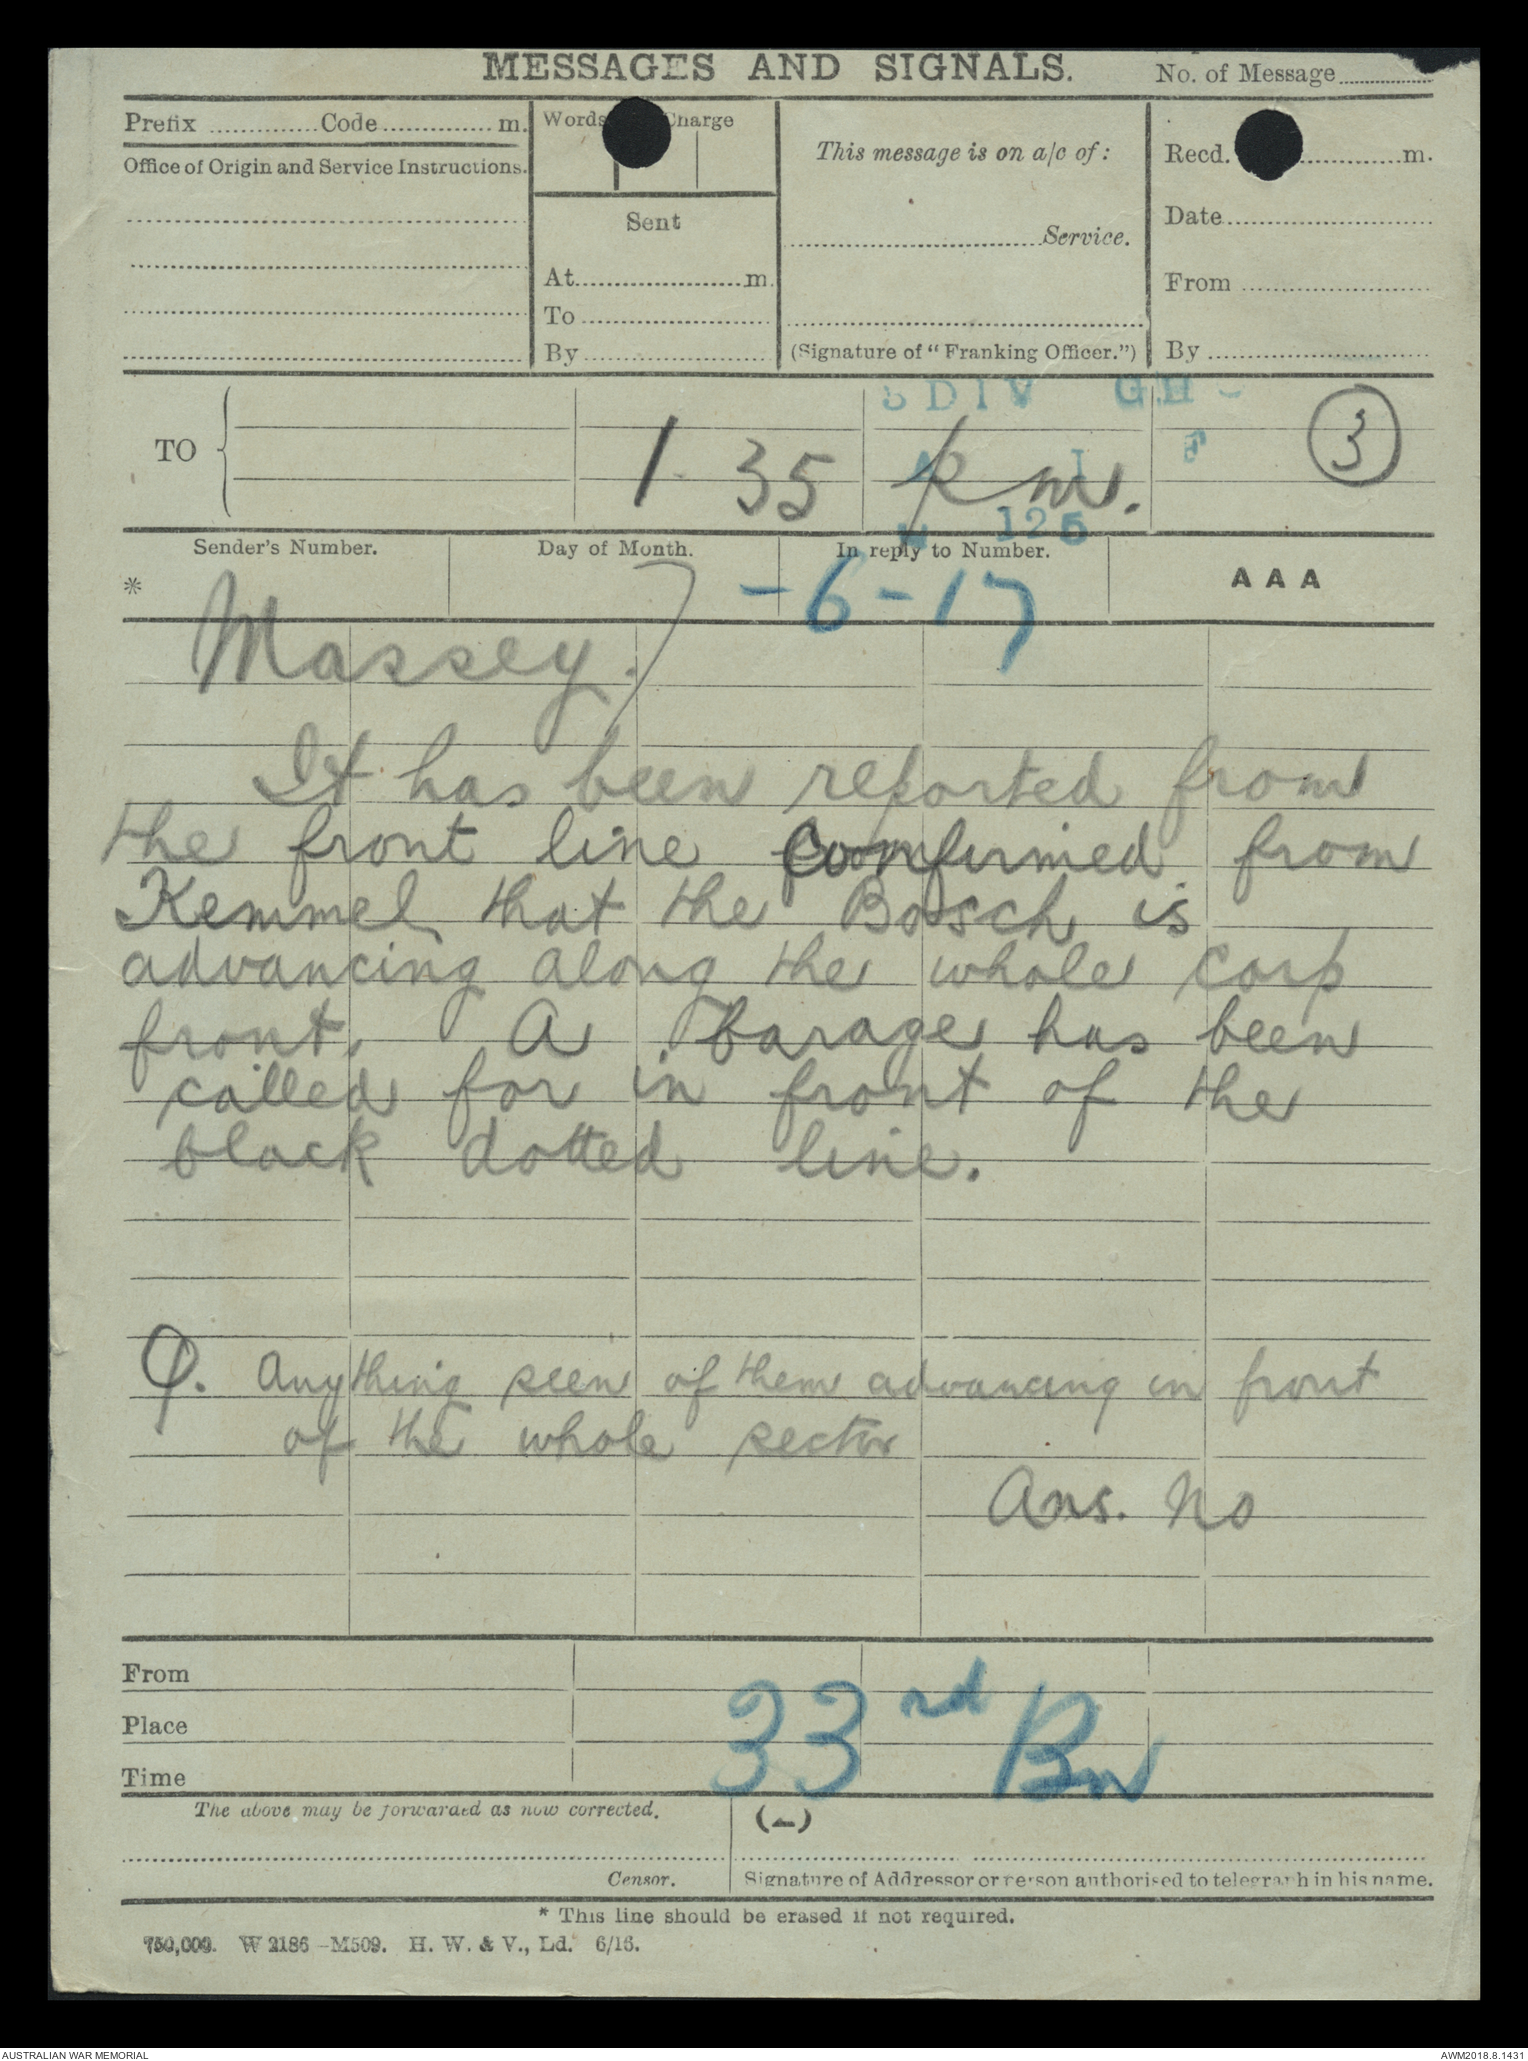 MESSAGES AND SIGNALS.
No. of Message
Prefix Code m.
Words Charge
This message is on a/c of:
Recd. m.
Office of Origin and Service Instructions.
Sent
Service.
Date
At m.
From
To
By
(Signature of "Franking Officer.")
By
3 DIV
TO
1. 35 p m.
3
125
Sender's Number.
Day of Month.
In reply to Number.
* 7 - 6 - 17
AAA
Massey.
It has been reported from
the front line confirmed from
Kemmel that the Bosch is
advancing along the whole corp
front. A barage has been
called for in front of the
black dotted line.
Q. Anything seen of them advancing in front
of the whole sector
Ans. No
From
Place
33rd Bn
Time
The above may be forwarded as now corrected.
(Z)
Censor.
Signature of Addressor or person authorised to telegraph in his name.
* This line should be erased if not required.
750,000. W 2186—M509. H. W. & V., Ld. 6/16.
AUSTRALIAN WAR MEMORIAL
AWM2018.8.1431